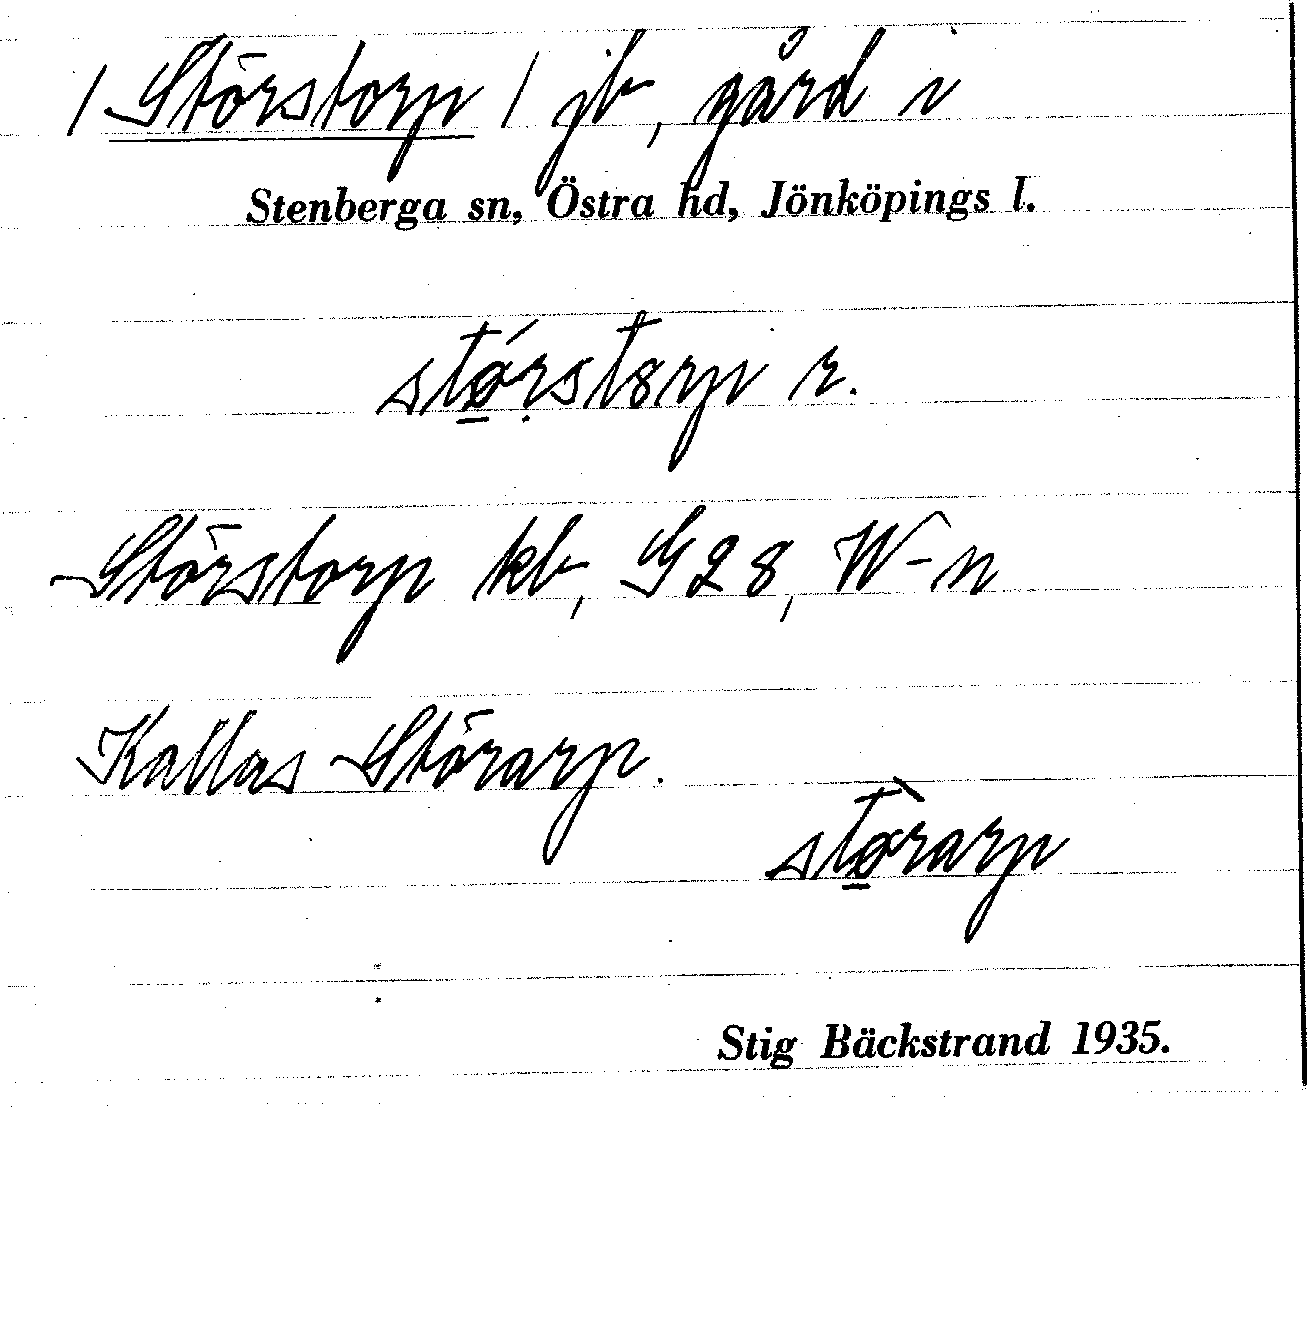 / Störstorp / jb, gård i
Stenberga sn, Östra hd, Jönköpings l.
stǿ̱ṛstȣrp r.
Störstorp kb, G28, W-n
Kallas Störarp.
stø̱̀rarp
Stig Bäckstrand 1935.